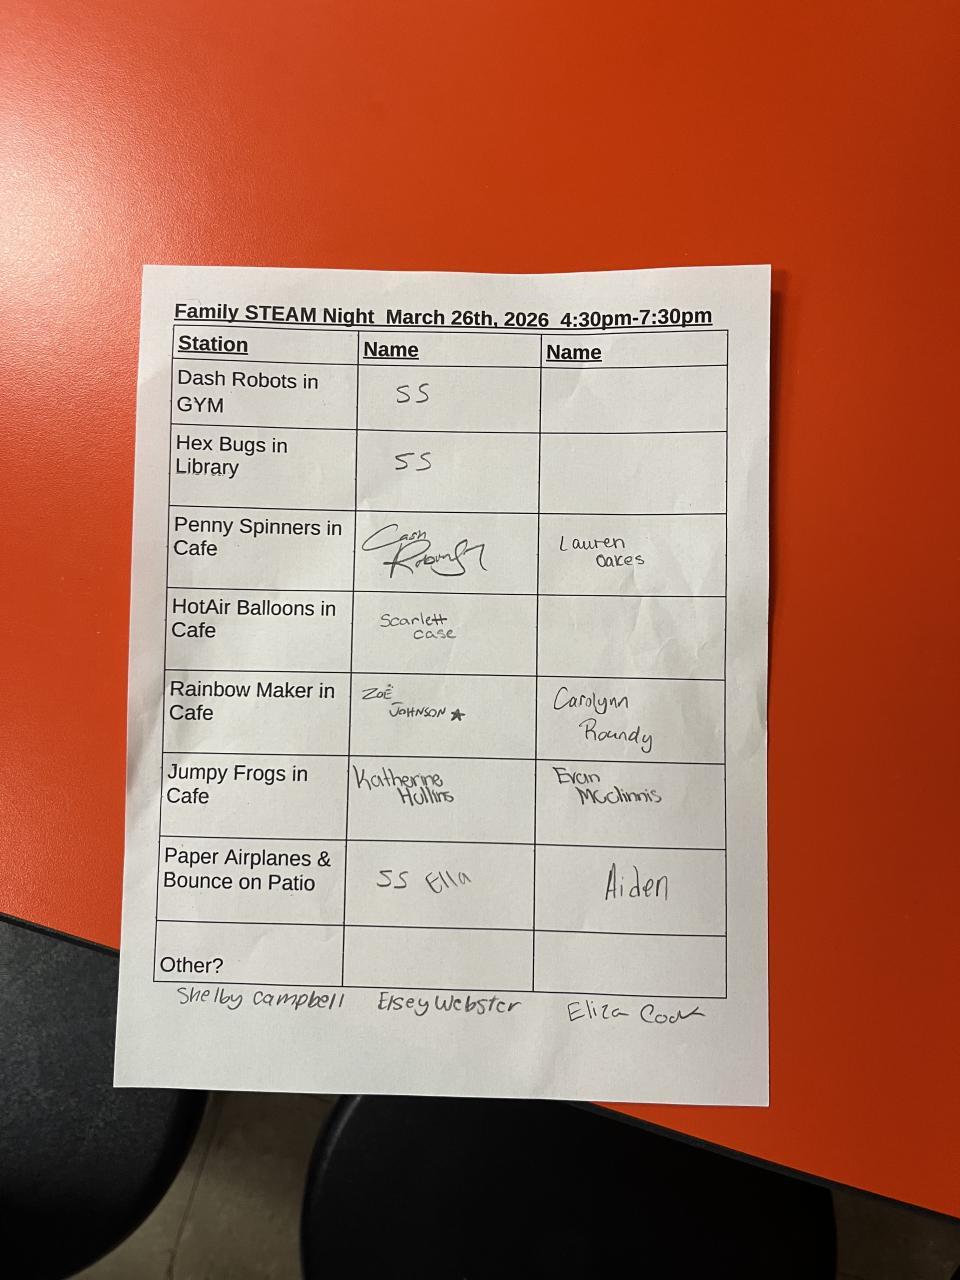 Family STEAM Night March 26th, 2026 4:30pm-7:30pm
Station Name Name
Dash Robots in
GYM
SS
Hex Bugs in
Library
SS
Penny Spinners in
Cafe
Cash
Lauren
Oakes
HotAir Balloons in
Cafe
Scarlett
case
Rainbow Maker in
Cafe
ZOË
JOHNSON ★
Carolynn
Roundy
Jumpy Frogs in
Cafe
Katherine
Hullins
Evan
Paper Airplanes &
Bounce on Patio
SS Ella
Aiden
Other?
Shelby Campbell Elsey Webster Eliza